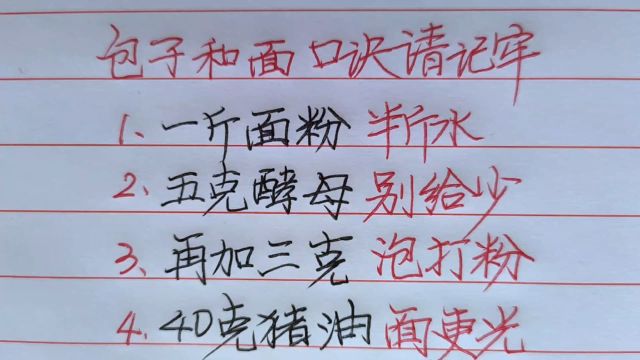 包子和面口诀请记牢
1、一斤面粉半斤水
2、五克酵母别给少
3、再加三克泡打粉
4、40克猪油面更光